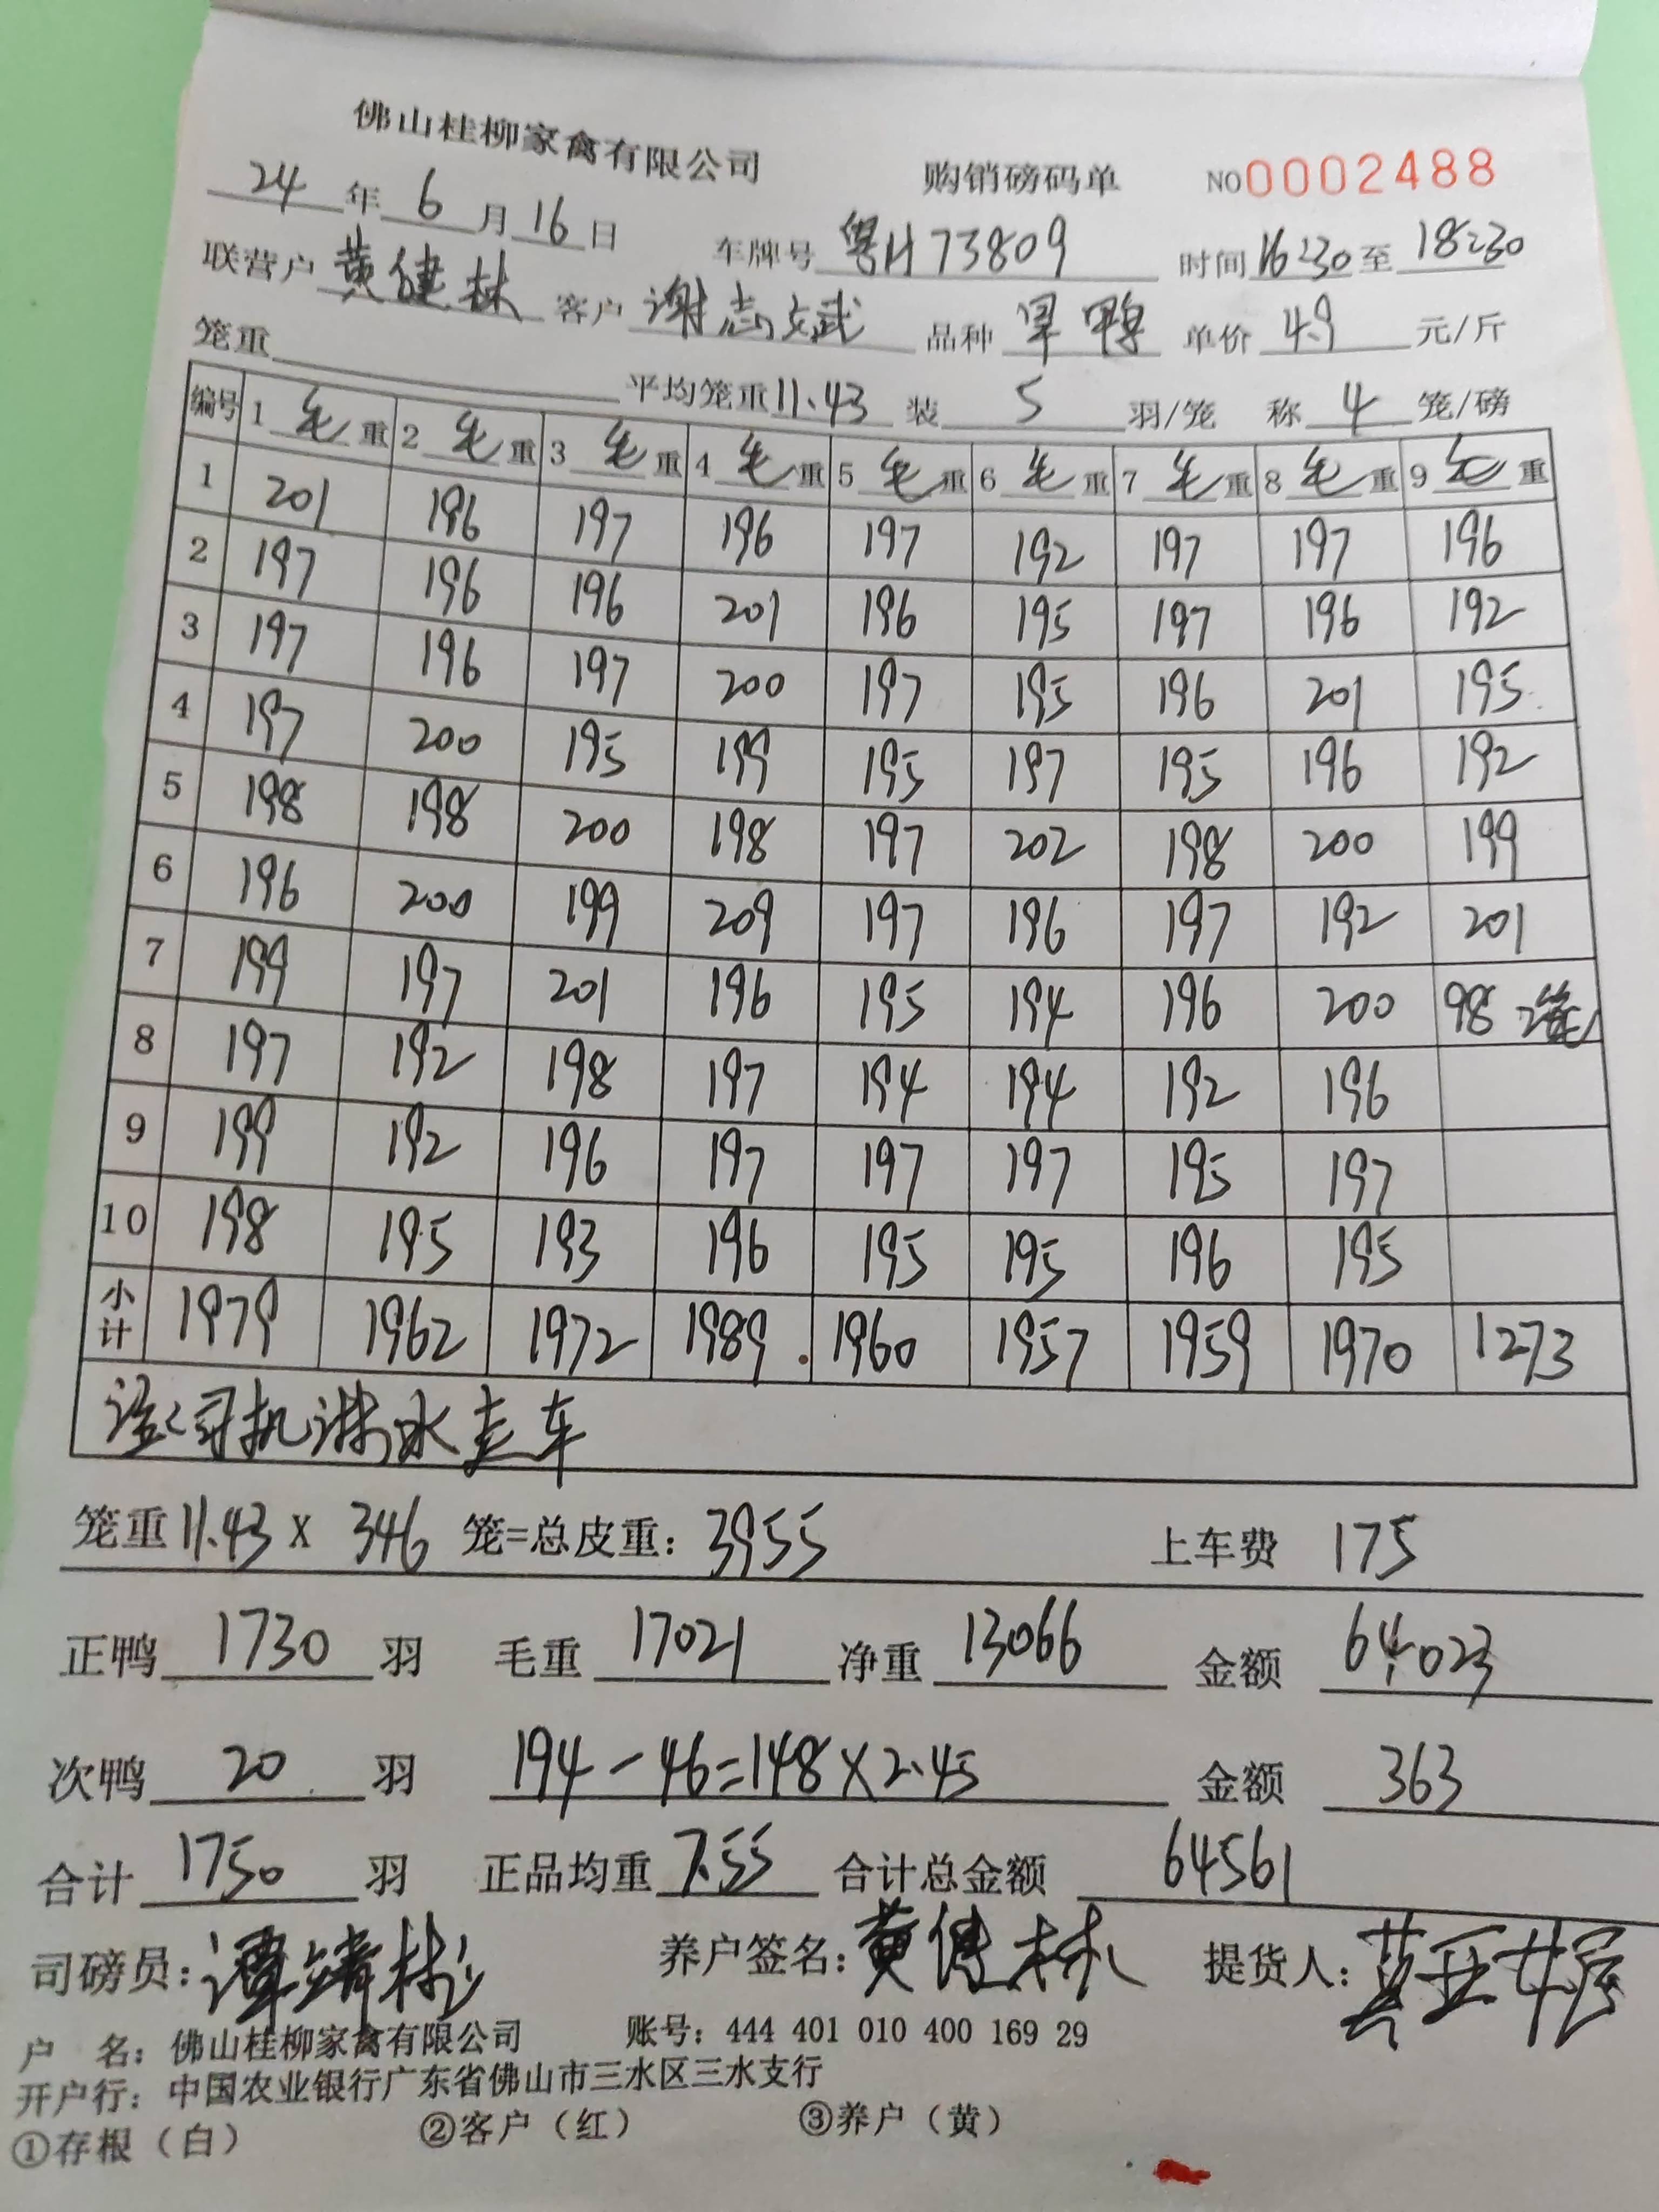 佛山桂柳家禽有限公司 购销磅码单 NO0002488
24年6月16日 车牌号 粤H73809 时间16:30至18:30
联营户 黄健林 客户 谢志斌 品种 旱鸭 单价 4.9 元/斤
笼重 平均笼重11.43 装 5 羽/笼 称 4 笼/磅
编号 1 毛重 2 毛重 3 毛重 4 毛重 5 毛重 6 毛重 7 毛重 8 毛重 9 毛重
1 201 196 197 196 197 192 197 197 196
2 197 196 196 201 196 195 197 196 192
3 197 196 197 200 197 195 196 201 195
4 197 200 195 199 195 197 195 196 192
5 198 198 200 198 197 202 198 200 199
6 196 200 199 209 197 196 197 192 201
7 199 197 201 196 195 194 196 200 98 2笼
8 197 192 198 197 194 194 192 196
9 199 192 196 197 197 197 195 197
10 198 195 193 196 195 195 196 195
小计 1979 1962 1972 1989 1960 1957 1959 1970 1273
注:司机淋水走车
笼重11.43 X 346 笼=总皮重: 3955 上车费 175
正鸭 1730 羽 毛重 17021 净重 13066 金额 64023
次鸭 20 羽 194-46=148X2.45 金额 363
合计 1750 羽 正品均重 7.55 合计总金额 64561
司磅员: 养户签名: 黄健林 提货人:
户 名: 佛山桂柳家禽有限公司 账号: 444 401 010 400 169 29
开户行: 中国农业银行广东省佛山市三水区三水支行
①存根（白） ②客户（红） ③养户（黄）